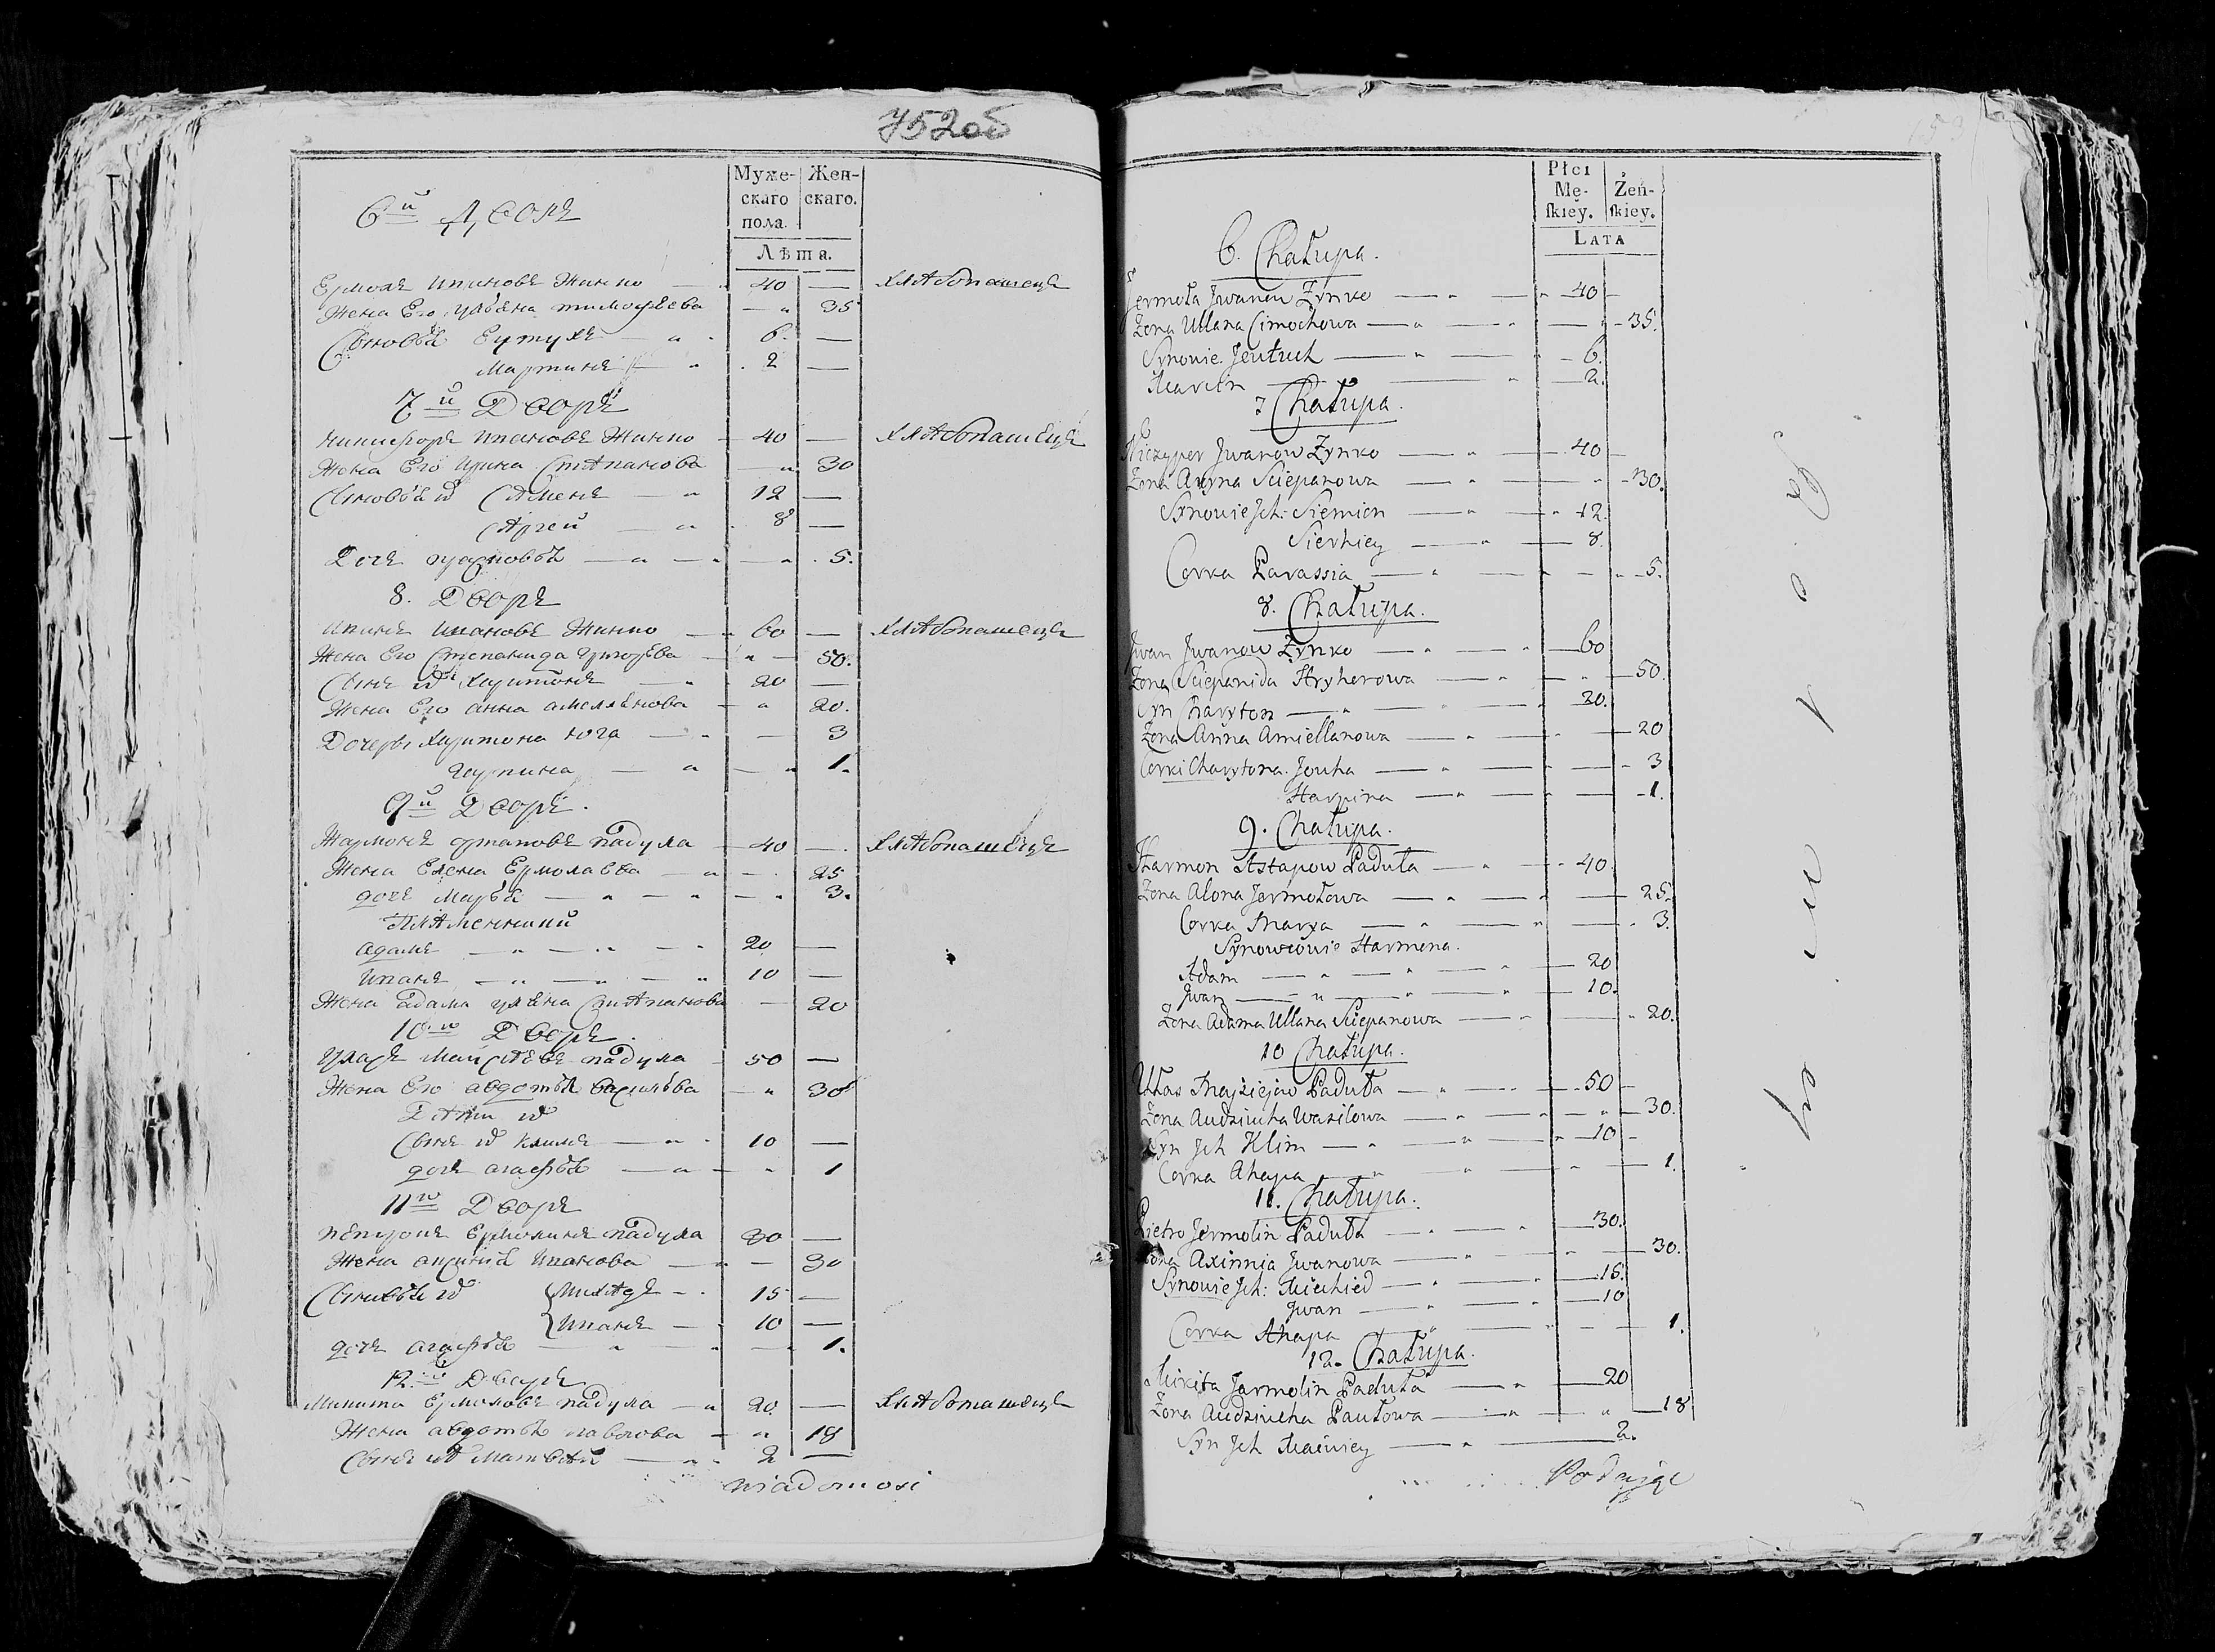 752об
Муже-
скаго
пола.
Жен-
скаго.
Лѣта.
6й Дворъ
Ермолъ Ивановъ Жинко — 40 — хлѣбопашецъ
Жена Его Ульяна Тимофѣева — 35
Сыновья Евтухъ — 6. —
Мартинъ — 2 —
7й Дворъ
Никифоръ Ивановъ Жинко — 40 — хлѣбопашецъ
Жена Его Ирина Стѣпанова — 30
Сыновья их Сѣменъ — 12 —
Сѣргей — 8 —
Дочь — 5.
8. Дворъ
Иванъ Ивановъ Жинко — 60 — хлѣбопашецъ
Жена Его Степанида Григорьева — 50.
Сынъ их Харитонъ — 20 —
Жена Его Анна Амельянова — 20.
Дочеры Харитона Юга — 3
Гарпина — 1.
9й Дворъ.
Хармонъ Остаповъ Падула — 40 — хлѣбопашецъ
Жена Елена Ермолаева — 25
дочь Марья — 3.
Плѣменники
Адамъ — 20 —
Иванъ — 10 —
Жена Адама Ульяна Стѣпанова — 20
10й Дворъ.
Уласъ Падула — 50 —
Жена Его Авдотья Васильева — 30
Дѣти их
Сынъ их Климъ — 10 —
дочь Агафья — 1
11й Дворъ
Ермолинъ Падула 30 —
Жена Аксинья Иванова — 30
Сыновья их Михѣдъ — 15 —
Иванъ — 10 —
дочь Агафья — 1.
12.й Дворъ
Микита Ермоловъ Падула — 20 — хлѣбопашецъ
Жена Авдотья Павлова — 18
Сынъ их Матвѣй — 2 —
wiadomosi
Płci
Mę-
ſkiey.
Żeń-
ſkiey.
Lata
6. Chałupa.
Jermoła Jwanow Zynko — 40 —
Zona Ullana Cimochowa — 35.
Synowie Jeutuch — 6.
Marcin — 2.
7 Chałupa.
Niczyper Jwanow Zynko — 40 —
Zona Aryna Sciepanowa — 30.
Synowie Jch: Siemien — 12.
Sierhiey — 8.
Corka Parassia — 5.
8. Chałupa.
Jwan Jwanow Zynko — 60
Zona Sciepanida Hryherowa — 50.
Syn Charyton — 20.
Zona Anna Amiellanowa — 20
Corki Charytona. Jouha — 3
Harpina — 1.
9. Chałupa.
Harmon Astapow Paduła — 40
Zona Alona Jermołowa — 25.
Corka Marya — 3.
Synowcowie Harmona.
Adam — 20
Jwan — 10.
Zona Adama Ullana Sciepanowa — 20.
10 Chałupa.
Ułas Maysiejew Paduła — 50 —
Zona Audziucha Wasilowa — 30.
Syn Jch Klim — 10 —
Corka Ahapa — 1.
11. Chałupa.
Pietro Jermolin Paduła — 30.
Zona Axinnia Jwanowa — 30.
Synowie Jch: Miechied — 15.
Jwan — 10
Corka Ahapa — 1.
12. Chałupa.
Mikita Jarmolin Paduła — 20
Zona Audziucha Paułowa — 18
Syn Jch Maciey — 2.
Podaięe